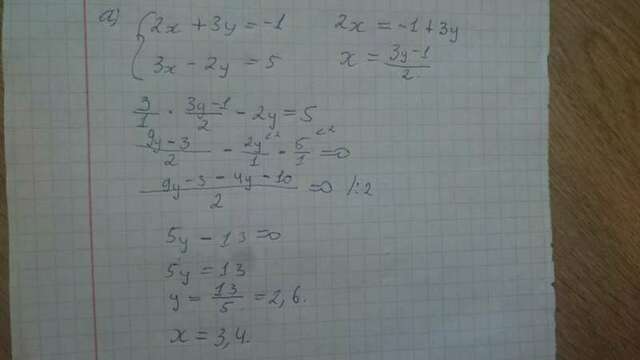 a) { 2x + 3y = -1    2x = -1 + 3y
3x - 2y = 5    x = (3y-1)/2
3/1 · (3y-1)/2 - 2y = 5
(9y-3)/2 - 2y/1 ^(·2) - 5/1 ^(·2) = 0
(9y-3-4y-10)/2 = 0 /:2
5y - 13 = 0
5y = 13
y = 13/5 = 2,6.
x = 3,4.